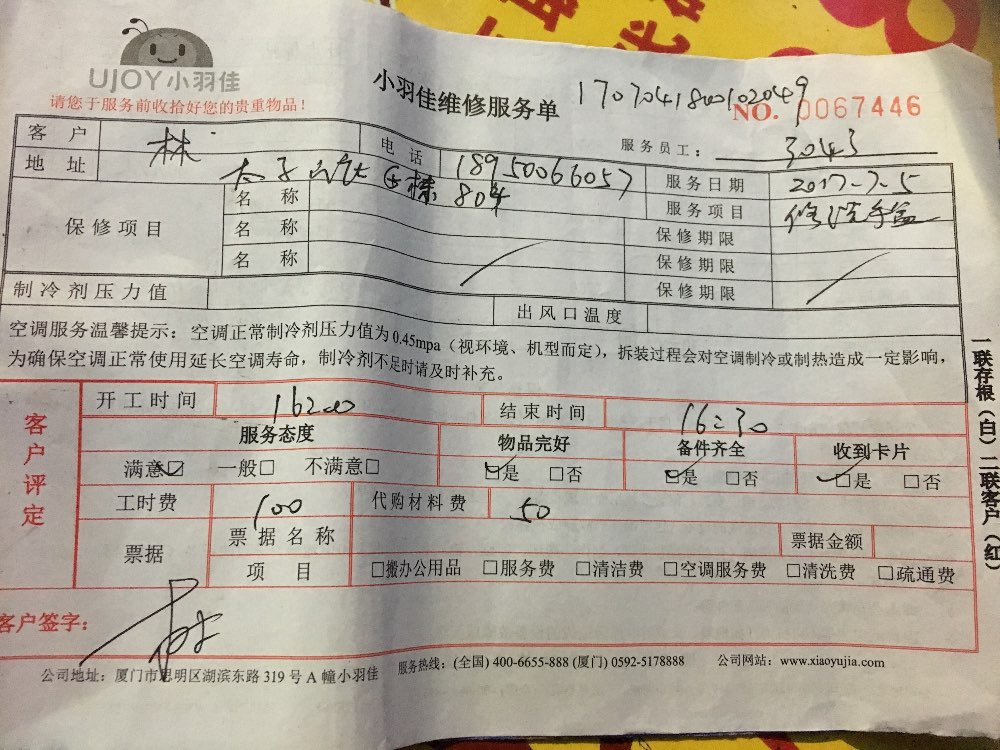 UJOY小羽佳
请您于服务前收拾好您的贵重物品！
小羽佳维修服务单 170704180010​2049
NO. 0067446
服务员工： 3043
客户 林 电话 18950066057 服务日期 2017-7-5
地址 804 服务项目
保修项目 名称 保修期限
名称 保修期限
名称 保修期限
制冷剂压力值 出风口温度
空调服务温馨提示：空调正常制冷剂压力值为0.45mpa（视环境、机型而定），拆装过程会对空调制冷或制热造成一定影响，
为确保空调正常使用延长空调寿命，制冷剂不足时请及时补充。
客户评定
开工时间 16:00 结束时间 16:30
服务态度 物品完好 备件齐全 收到卡片
满意☑ 一般□ 不满意□ ☑是 □否 ☑是 □否 ☑是 □否
工时费 100 代购材料费 50
票据 票据名称 票据金额
项目 □搬办公用品 □服务费 □清洁费 □空调服务费 □清洗费 □疏通费
客户签字：
公司地址：厦门市思明区湖滨东路319号A幢小羽佳 服务热线：(全国) 400-6655-888 (厦门) 0592-5178888 公司网站：www.xiaoyujia.com
一联存根（白）二联客户（红）